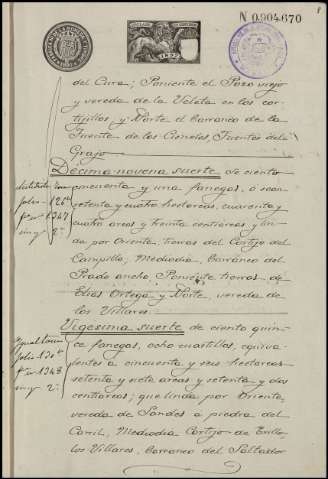 N 0.904.670
1897
del Cura; Poniente el Pozo viejo
y vereda de la Veleta en los cor-
tijillos, y Norte el barranco de la
Fuente de los Ciruelos, Fuentes del
Grajo
Décima novena suerte de ciento
cincuenta y una fanegas, o sean
setenta y cuatro hectareas, cuarenta y
cuatro areas y treinta centiareas, y lin-
da por Oriente, tierras del Cortijo del
Campillo, Mediodia, Barranco del
Prado ancho, Poniente tierras de
Elias Ortega y Norte, vereda de
los Villares.
Vigesima suerte de ciento quin-
ce fanegas, ocho cuartillos, equiva-
lentes a cincuenta y seis hectareas
setenta y siete areas y setenta y dos
centiareas; que linda por Oriente,
vereda de Sandes a piedra del
Carril, Mediodia Cortijo de
los Villares, Barranco del Saltador
folio 126
nº 1347
insº 2ª
Igual tomo
folio 130
nº 1348
insº 2ª